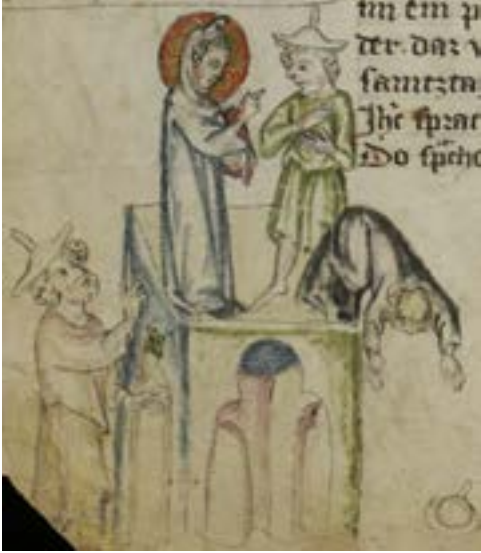 ein p
ter. daz v
samezta
Jhc sprac
Do spch